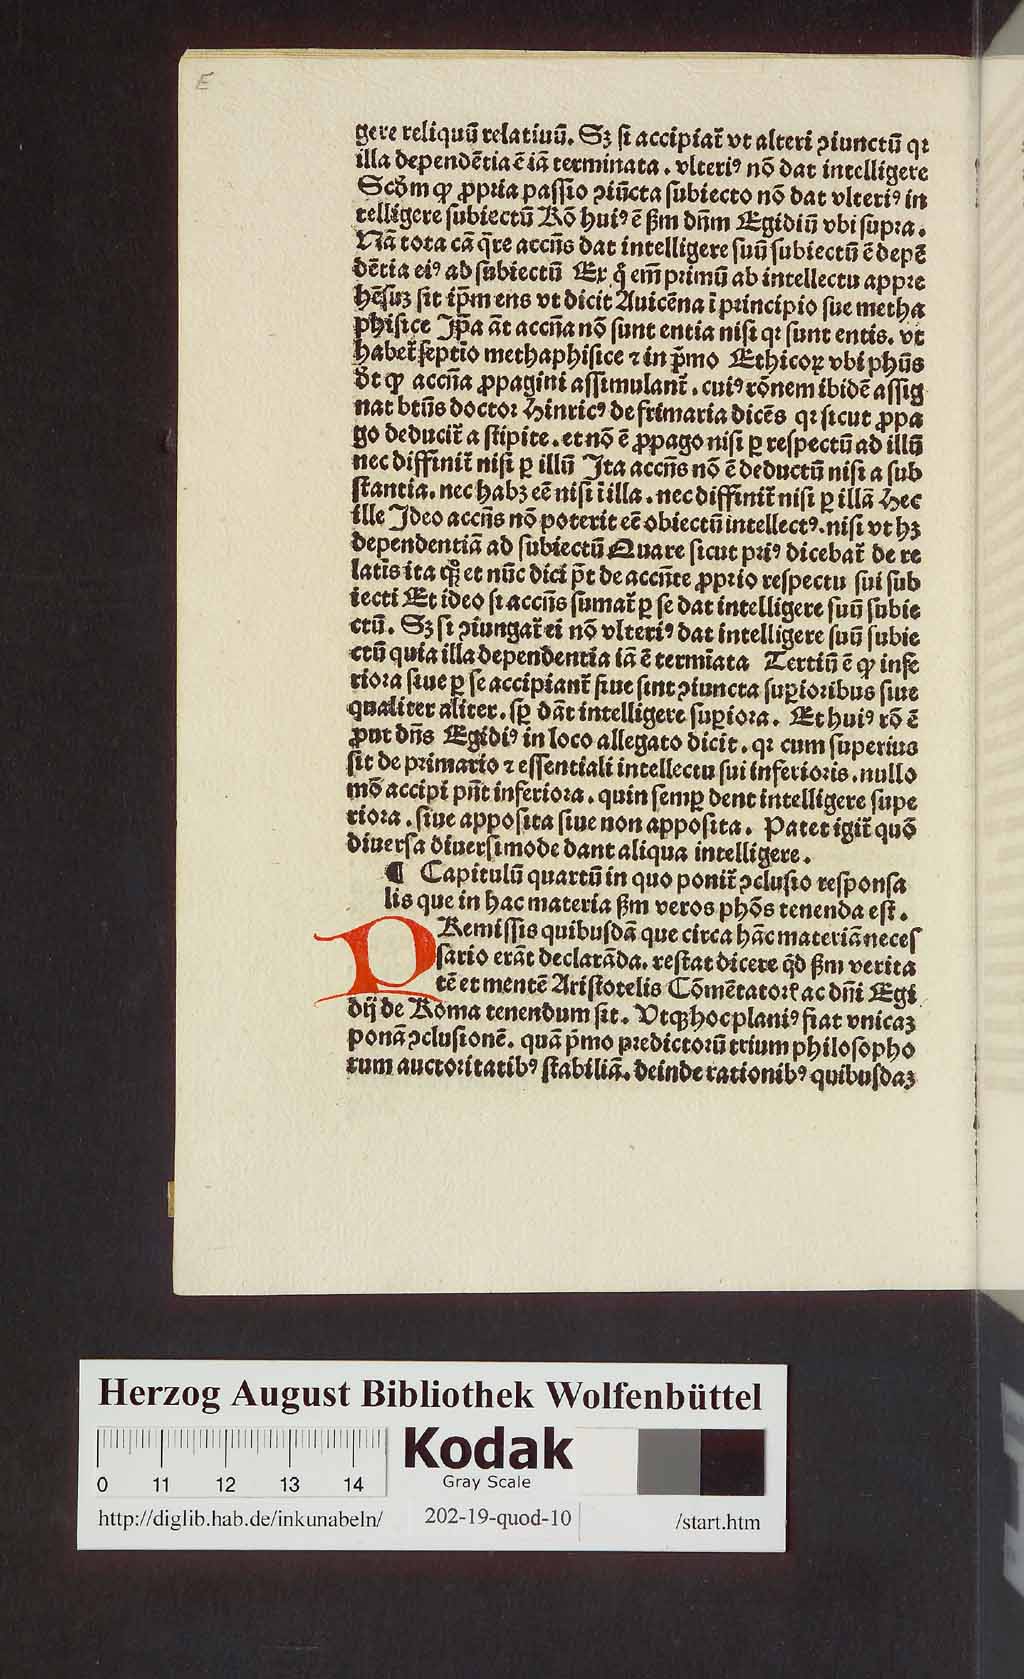 E
gere reliquū relatiuū. Sꝫ ſi accipiat᷑ vt alteri ꝯiunctū qꝛ
illa dependētia ē iā terminata. vlteriꝰ nō dat intelligere
Scḋm ꝙ ꝓpria paſſio ꝯiūcta ſubiecto nō dat vlteriꝰ in
telligere ſubiectū Rō huiꝰ ē ẜm dn̄m Egidiū vbi ſupra.
Nā tota cā q̄re accn̄s dat intelligere ſuū ſubiectū ē depē
dētia eiꝰ ad ſubiectū Ex q̊ em̄ primū ab intellectu appre
hēſuꝫ ſit ip̄m ens vt dicit Auicēna ī principio ſue metha
phiſice Ip̄a āt accn̄a nō ſunt entia niſi qꝛ ſunt entis. vt
habet᷑ ſeptīo methaphiſice ⁊ in p̄mo Ethicoꝝ vbi phūs
d̄t ꝙ accn̄a ꝓpagini aſſimulant᷑. cuiꝰ rōnem ibidē aſſig
nat btūs doctor Hinricꝰ de frimaria dicēs qꝛ ſicut ꝓpa
go deducit᷑ a ſtipite. et nō ē ꝓpago niſi ꝑ reſpectū ad illū
nec diffinit᷑ niſi ꝑ illū Ita accn̄s nō ē deductū niſi a ſub
ſtantia. nec habꝫ eē niſi ī illa. nec diffinit᷑ niſi ꝑ illā Hec
ille Ideo accn̄s nō poterit eē obiectū intellectꝰ. niſi vt hꝫ
dependentiā ad ſubiectū Quare ſicut priꝰ dicebat᷑ de re
latīs ita qͣſi et nūc dici p̄t de accn̄te ꝓprio reſpectu ſui ſub
iecti Et ideo ſi accn̄s ſumat᷑ ꝑ ſe dat intelligere ſuū ſubie
ctū. Sꝫ ſi ꝯiungat᷑ ei nō vlteriꝰ dat intelligere ſuū ſubie
ctū quia illa dependentia iā ē termīata Tertiū ē ꝙ infe
riora ſiue ꝑ ſe accipiant᷑ ſiue ſint ꝯiuncta ſuꝑioribus ſiue
qualiter aliter. ſꝑ dāt intelligere ſuꝑiora. Et huiꝰ rō ē
ꝓut dn̄s Egidiꝰ in loco allegato dicit. qꝛ cum ſuperius
ſit de primario ⁊ eſſentiali intellectu ſui inferioris. nullo
mō accipi pn̄t inferiora. quin ſemꝑ dent intelligere ſupe
riora. ſiue appoſita ſiue non appoſita. Patet igit᷑ quō
diuerſa diuerſimode dant aliqua intelligere.
¶ Capitulū quartū in quo ponit᷑ ꝯcluſio reſponſa
lis que in hac materia ẜm veros phōs tenenda eſt.
PRemiſſis quibuſdā que circa hāc materiā neceſ
ſario erāt declarāda. reſtat dicere qd̄ ẜm verita
tē et mentē Ariſtotelis Cōmētatorꝭ ac dn̄i Egi
dij de Roma tenendum ſit. Vtqꝫ hoc planiꝰ fiat vnicaꝫ
ponā ꝯcluſionē. quā p̄mo predictorū trium philoſopho
rum auctoritatibꝰ ſtabiliā. deinde rationibꝰ quibuſdaꝫ
Herzog August Bibliothek Wolfenbüttel
0 11 12 13 14
Kodak
Gray Scale
http://diglib.hab.de/inkunabeln/ 202-19-quod-10 /start.htm